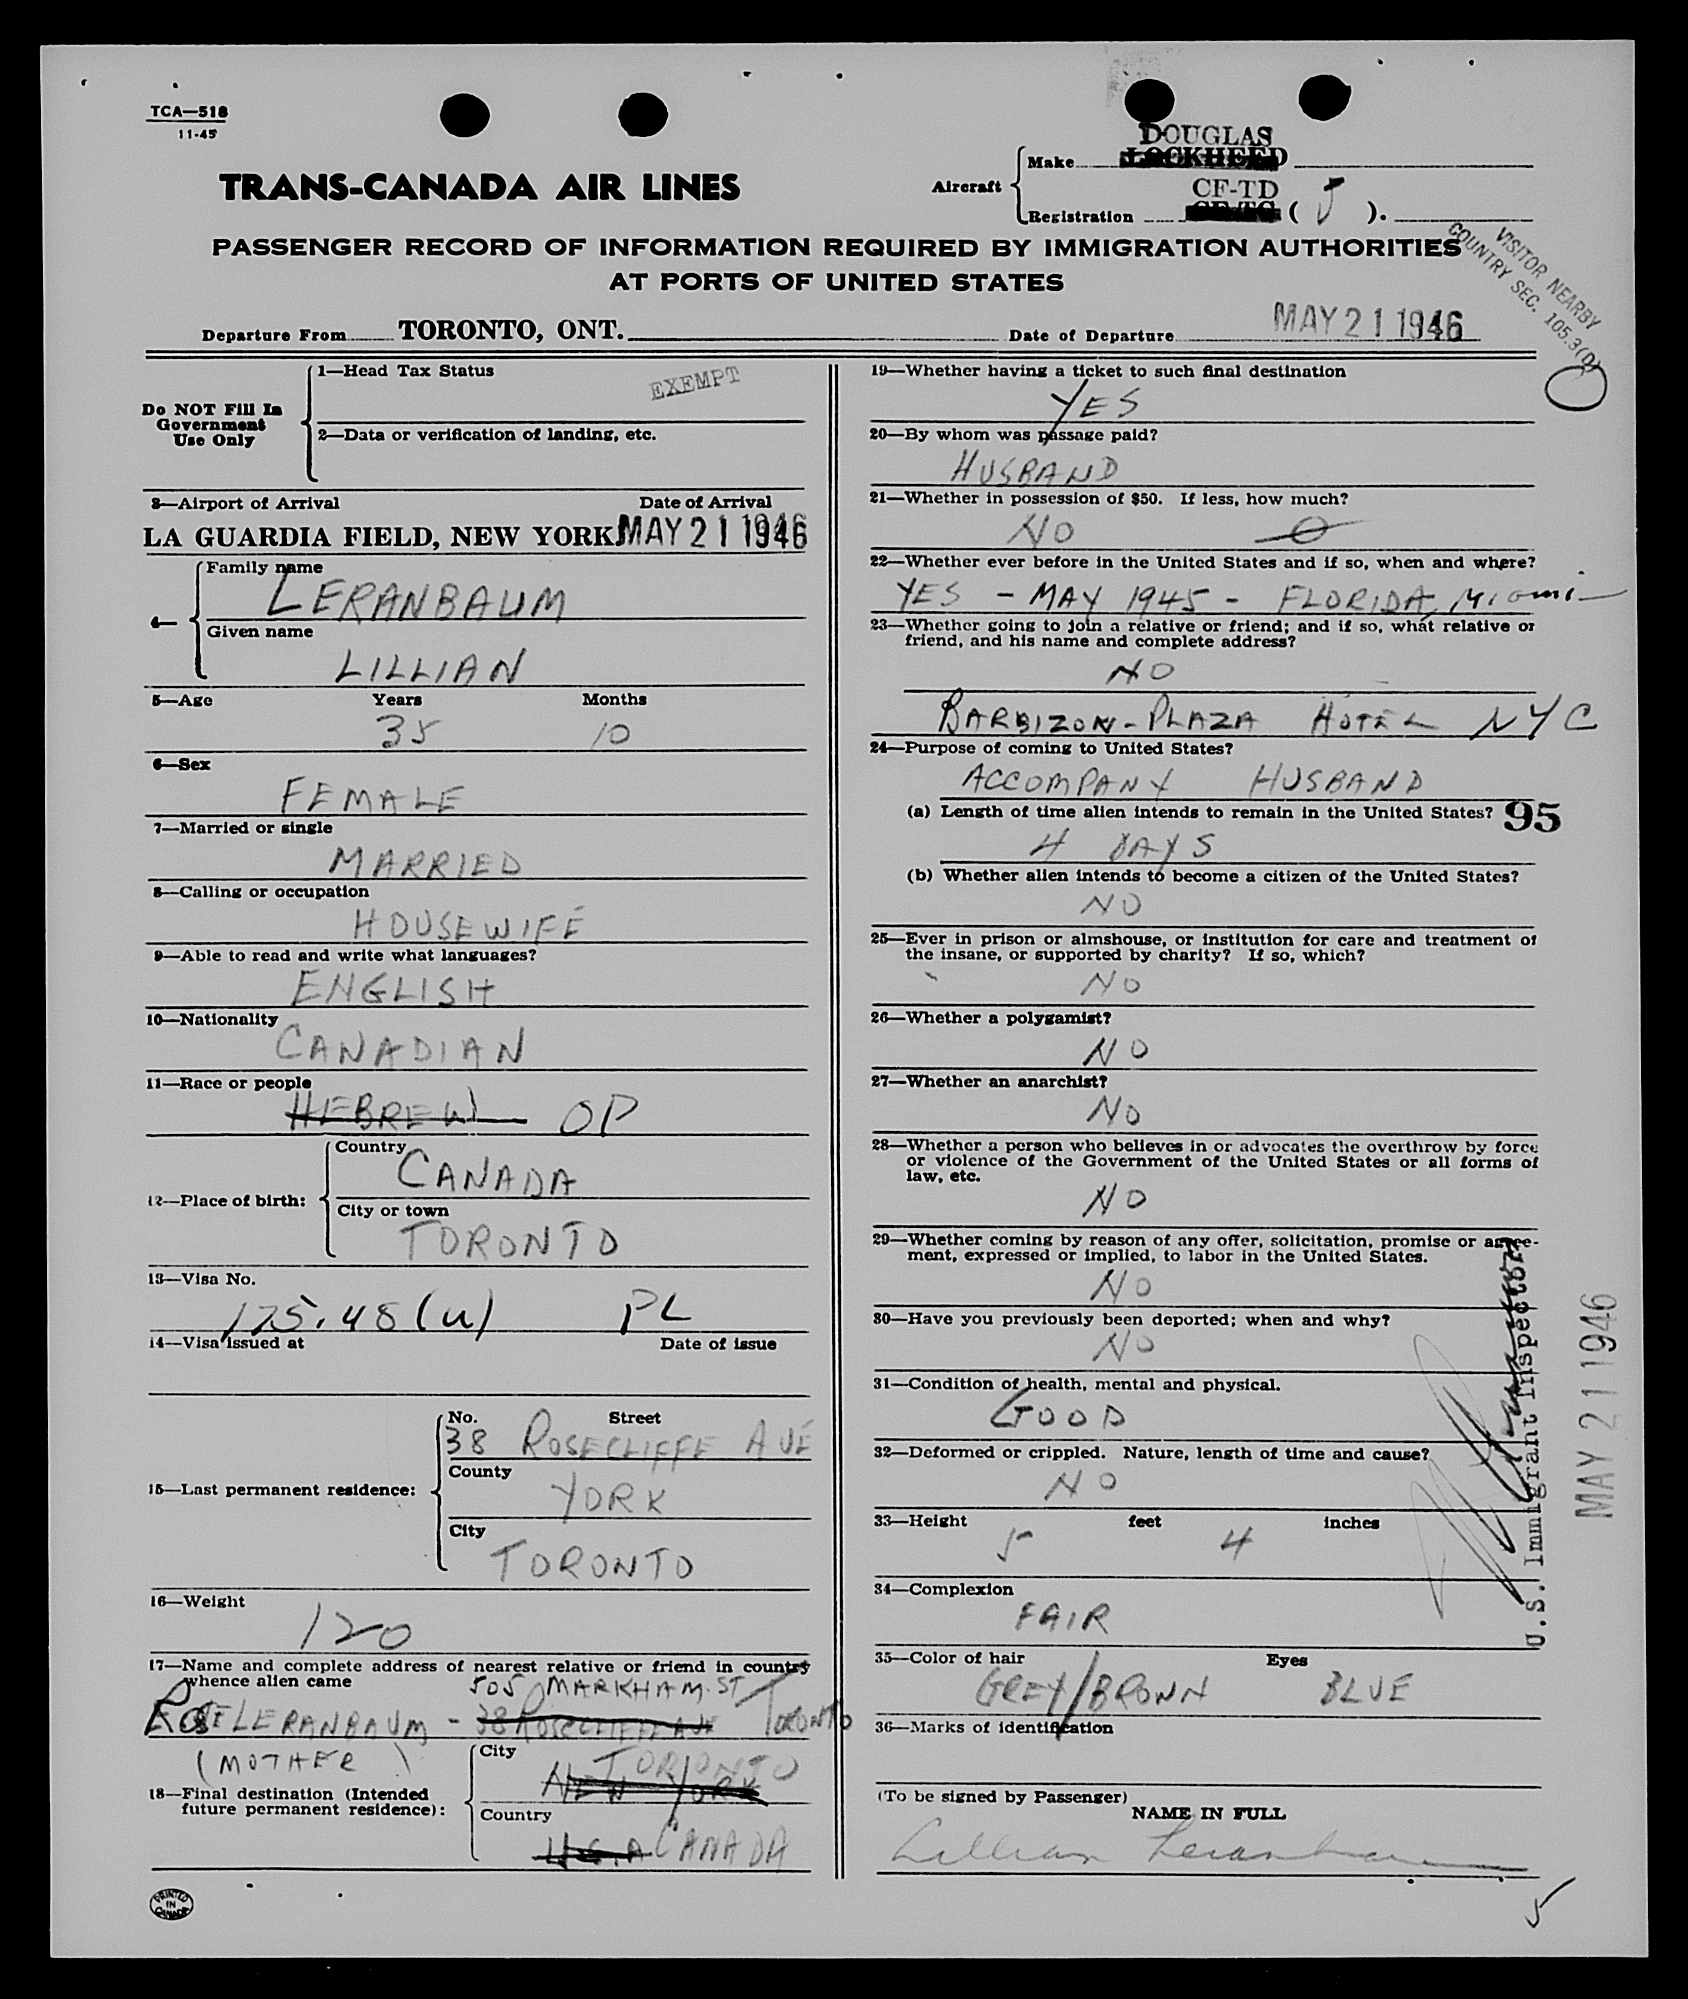 TCA—518
11-45
TRANS-CANADA AIR LINES
Aircraft
Make
DOUGLAS
LOCKHEED
Registration
CF-TD
CF-TC ( J ).
PASSENGER RECORD OF INFORMATION REQUIRED BY IMMIGRATION AUTHORITIES
AT PORTS OF UNITED STATES
VISITOR NEARBY
COUNTRY SEC. 105.3(D)
Departure From TORONTO, ONT.
Date of Departure MAY 21 1946
Do NOT Fill In
Government
Use Only
1—Head Tax Status
EXEMPT
2—Data or verification of landing, etc.
3—Airport of Arrival Date of Arrival
LA GUARDIA FIELD, NEW YORK MAY 21 1946
4—
Family name
LERANBAUM
Given name
LILLIAN
5—Age Years Months
35 10
6—Sex
FEMALE
7—Married or single
MARRIED
8—Calling or occupation
HOUSEWIFE
9—Able to read and write what languages?
ENGLISH
10—Nationality
CANADIAN
11—Race or people
HEBREW OP
12—Place of birth:
Country
CANADA
City or town
TORONTO
13—Visa No.
175.48 (u) PL
14—Visa issued at Date of issue
15—Last permanent residence:
No. Street
38 ROSECLIFFE AVE
County
YORK
City
TORONTO
16—Weight
120
17—Name and complete address of nearest relative or friend in country
whence alien came
505 MARKHAM ST
ROSE LERANBAUM - 38 ROSECLIFFE AVE TORONTO
(MOTHER)
18—Final destination (Intended
future permanent residence):
City
TORONTO
NEW YORK
Country
U.S.A CANADA
PRINTED
IN
CANADA
19—Whether having a ticket to such final destination
YES
20—By whom was passage paid?
HUSBAND
21—Whether in possession of $50. If less, how much?
NO 0
22—Whether ever before in the United States and if so, when and where?
YES - MAY 1945 - FLORIDA, Miami
23—Whether going to join a relative or friend; and if so, what relative or
friend, and his name and complete address?
NO
BARBIZON-PLAZA HOTEL NYC
24—Purpose of coming to United States?
ACCOMPANY HUSBAND
(a) Length of time alien intends to remain in the United States? 95
4 DAYS
(b) Whether alien intends to become a citizen of the United States?
NO
25—Ever in prison or almshouse, or institution for care and treatment of
the insane, or supported by charity? If so, which?
NO
26—Whether a polygamist?
NO
27—Whether an anarchist?
NO
28—Whether a person who believes in or advocates the overthrow by force
or violence of the Government of the United States or all forms of
law, etc.
NO
29—Whether coming by reason of any offer, solicitation, promise or agree-
ment, expressed or implied, to labor in the United States.
NO
30—Have you previously been deported; when and why?
NO
31—Condition of health, mental and physical.
GOOD
32—Deformed or crippled. Nature, length of time and cause?
NO
33—Height feet inches
5 4
34—Complexion
FAIR
35—Color of hair Eyes
GREY/BROWN BLUE
36—Marks of identification
(To be signed by Passenger)
NAME IN FULL
Lillian Leranbaum
U.S. Immigrant Inspector
MAY 21 1946
5